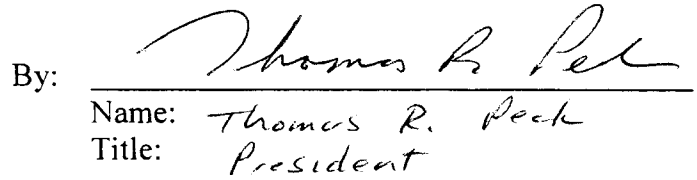 By: Thomas R. Peck
Name: Thomas R. Peck
Title: President